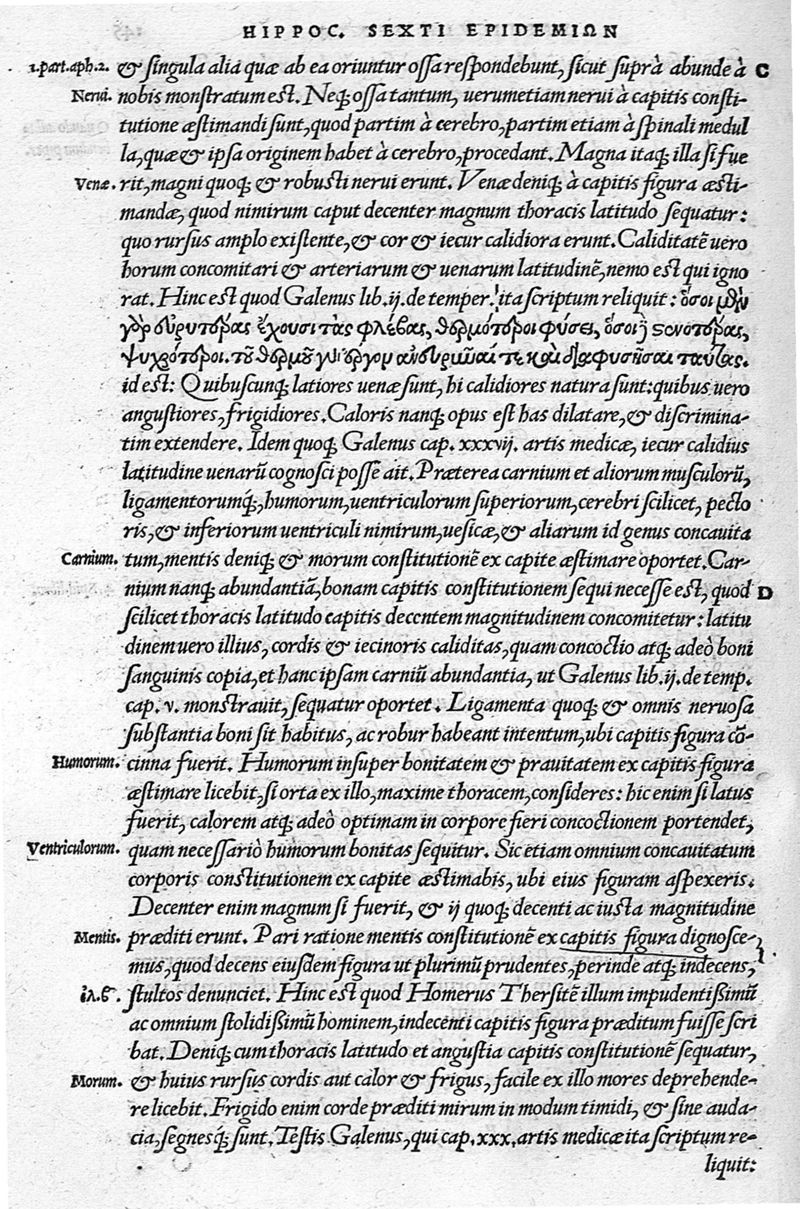 HIPPOC. SEXTI EPIDEMIΩN
1.part.aph.2. & singula alia quæ ab ea oriuntur ossa respondebunt, sicut suprà abunde à C
Nerui. nobis monstratum est. Neq; ossa tantum, uerumetiam nerui à capitis consti-
tutione æstimandi sunt, quod partim à cerebro, partim etiam à spinali medul
la, quæ & ipsa originem habet à cerebro, procedant. Magna itaq; illa si fue
Venæ. rit, magni quoq; & robusti nerui erunt. Venæ deniq; à capitis figura æsti-
mandæ, quod nimirum caput decenter magnum thoracis latitudo sequatur:
quo rursus amplo existente, & cor & iecur calidiora erunt. Caliditatẽ uero
horum concomitari & arteriarum & uenarum latitudinẽ, nemo est qui igno
rat. Hinc est quod Galenus lib.ij. de temper. ita scriptum reliquit: ὅσοι μὲν
γὰρ εὐρυτέρας ἔχουσι τὰς φλέβας, θερμότεροι φύσει, ὅσοι ϳ στενοτέρας,
ψυχρότεροι. τοῦ θερμοῦ γὰρ ἔργον ἀνευρῦναί τε καὶ διαφυσῆσαι ταύτας.
id est: Quibuscunq; latiores uenæ sunt, hi calidiores natura sunt: quibus uero
angustiores, frigidiores. Caloris nanq; opus est has dilatare, & discrimina-
tim extendere. Idem quoq; Galenus cap. xxxvij. artis medicæ, iecur calidius
latitudine uenarũ cognosci posse ait. Præterea carnium et aliorum musculorũ,
ligamentorumq́;, humorum, uentriculorum superiorum, cerebri scilicet, pecto
ris, & inferiorum uentriculi nimirum, uesicæ, & aliarum id genus concauita
Carnium. tum, mentis deniq; & morum constitutionẽ ex capite æstimare oportet. Car-
nium nanq; abundantiã, bonam capitis constitutionem sequi necesse est, quod D
scilicet thoracis latitudo capitis decentem magnitudinem concomitetur: latitu
dinem uero illius, cordis & iecinoris caliditas, quam concoctio atq; adeò boni
sanguinis copia, et hanc ipsam carniũ abundantia, ut Galenus lib.ij. de temp.
cap. v. monstrauit, sequatur oportet. Ligamenta quoq; & omnis neruosa
substantia boni sit habitus, ac robur habeant intentum, ubi capitis figura cõ-
Humorum. cinna fuerit. Humorum insuper bonitatem & prauitatem ex capitis figura
æstimare licebit, si orta ex illo, maxime thoracem, consideres: hic enim si latus
fuerit, calorem atq; adeò optimam in corpore fieri concoctionem portendet,
Ventriculorum. quam necessariò humorum bonitas sequitur. Sic etiam omnium concauitatum
corporis constitutionem ex capite æstimabis, ubi eius figuram aspexeris.
Decenter enim magnum si fuerit, & ij quoq; decenti ac iusta magnitudine
Mentis. præditi erunt. Pari ratione mentis constitutionẽ ex capitis figura dignosce-
mus, quod decens eiusdem figura ut plurimũ prudentes, perinde atq; indecens,
ἰλ.β. stultos denunciet. Hinc est quod Homerus Thersitẽ illum impudentißimũ
ac omnium stolidißimũ hominem, indecenti capitis figura præditum fuisse scri
bat. Deniq; cum thoracis latitudo et angustia capitis constitutionẽ sequatur,
Morum. & huius rursus cordis aut calor & frigus, facile ex illo mores deprehende-
re licebit. Frigido enim corde præditi mirum in modum timidi, & sine auda-
cia, segnesq́; sunt. Testis Galenus, qui cap. xxx. artis medicæ ita scriptum re-
liquit: